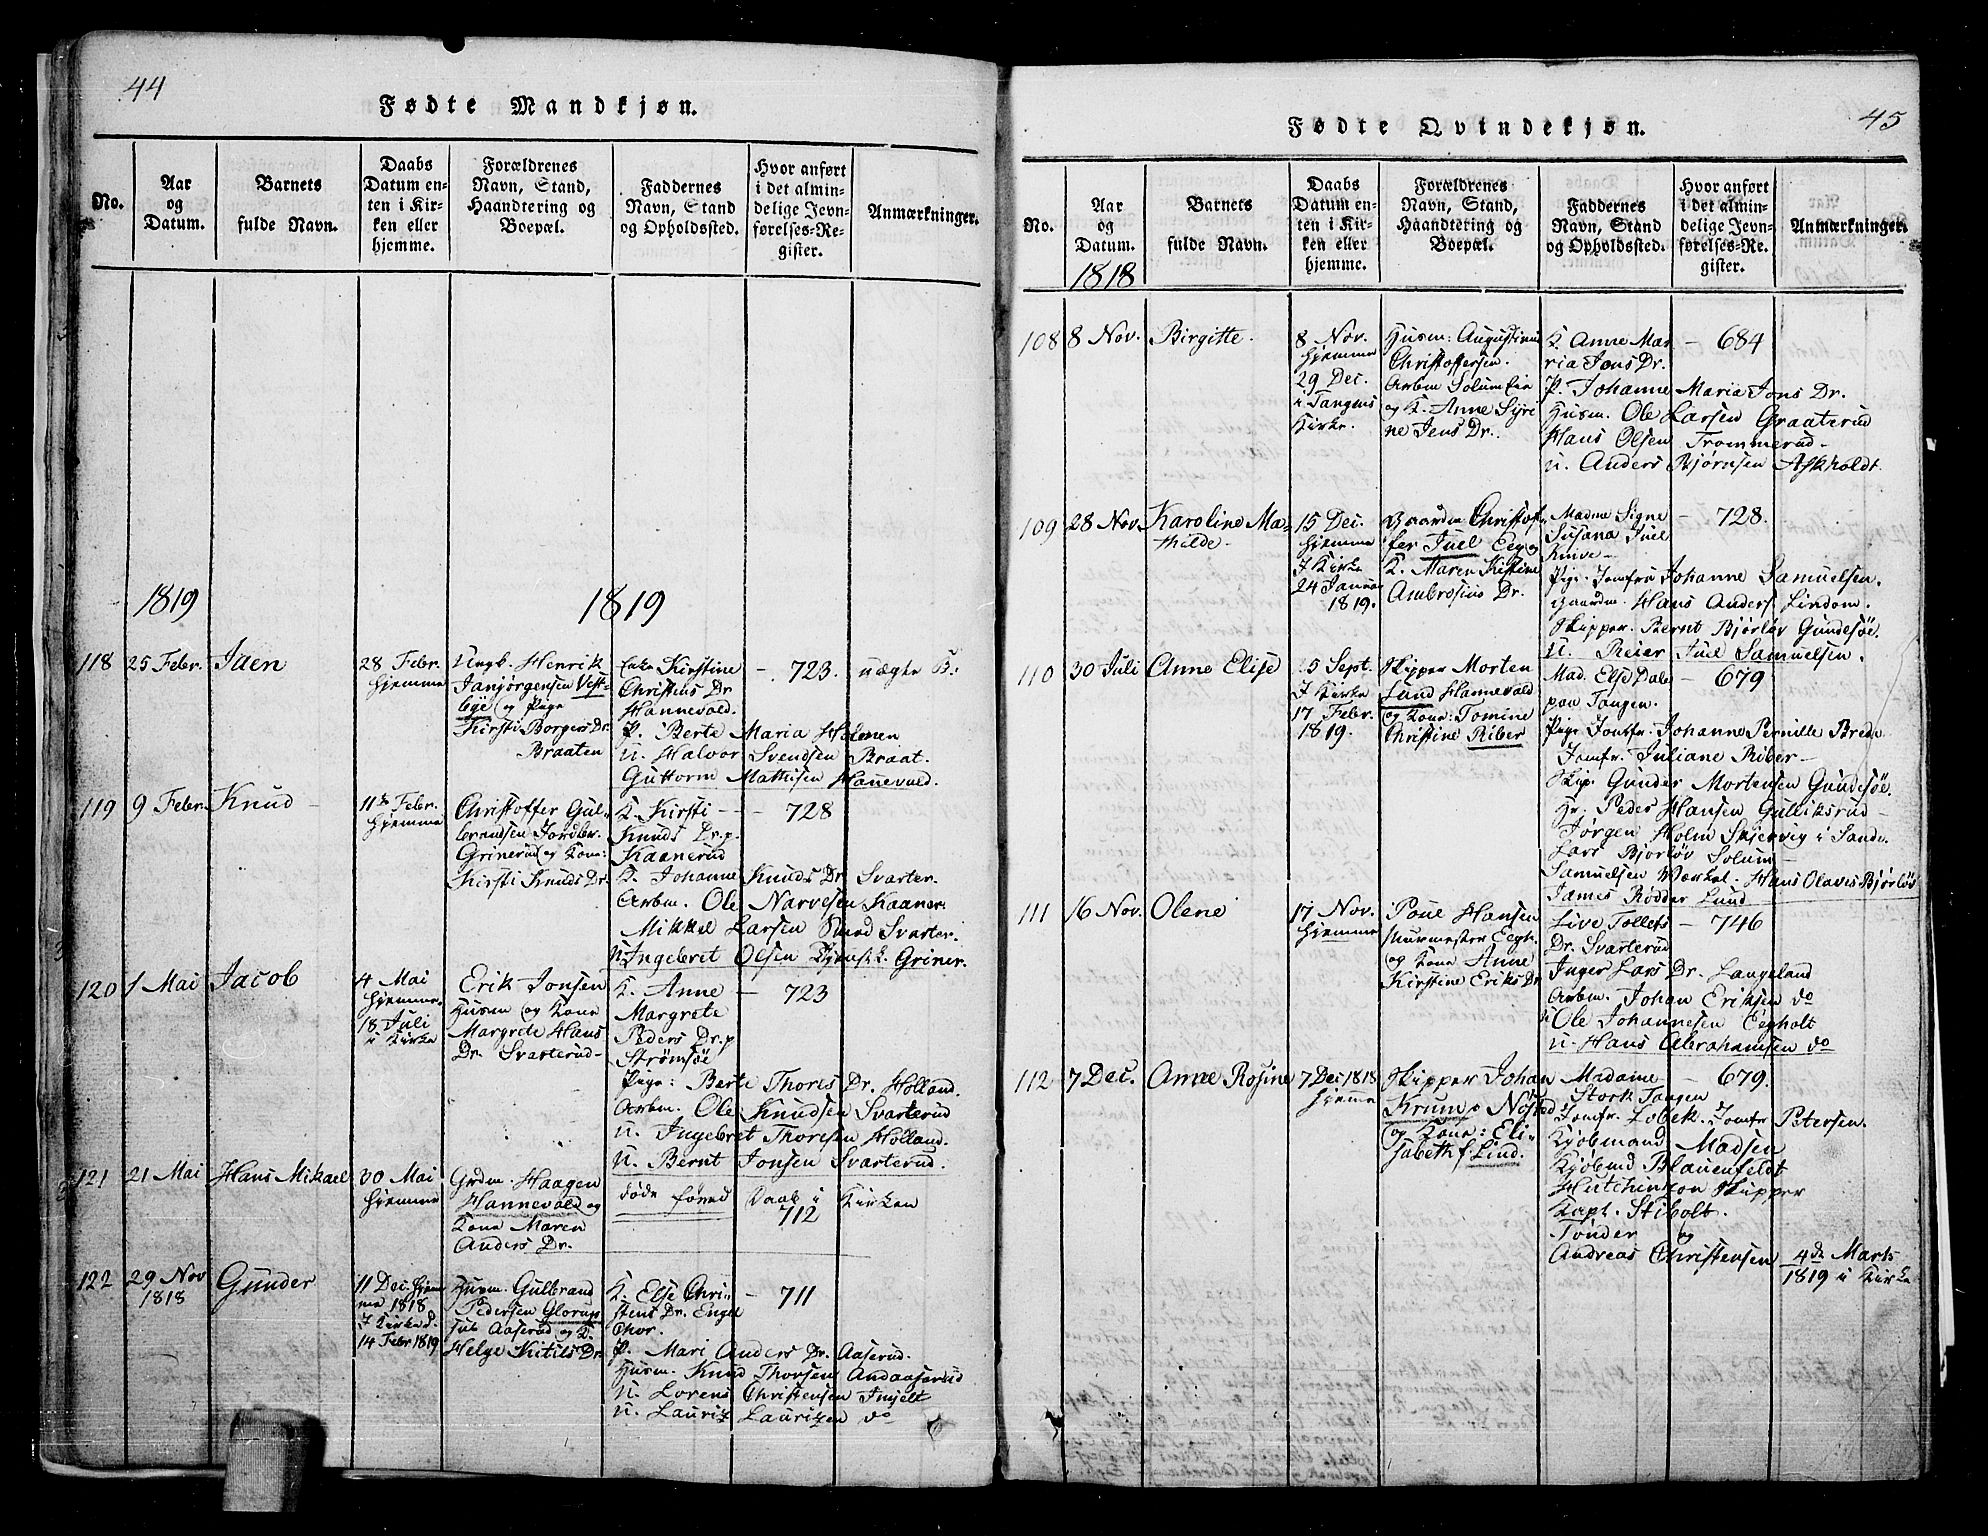 44
Fødte Mandkjøn.
No.
Aar
og
Datum.
Barnets
fulde Navn.
Daabs
Datum en-
ten i Kir-
ken eller
hjemme.
Forældrenes
Navn, Stand,
Haandtering og
Boepæl.
Faddernes
Navn, Stand
og Opholdssted.
Hvor anført
i det almin-
delige Jevn-
førelses-Re-
gister.
Anmærkninger.
1819
1819
118
25 Febr.
Jaen
28 Febr.
hjemme
Ungk. Henrik
Janjørgensen Vest-
bye og Pige
Kirsti Borgers Dr.
Braaten
Enke Kirstine
Christins Dr
Hannevald.
P. Berte Maria Holmen
U. Halvor Svendsen Braat.
Guttorm Mathisen Hanevald.
723.
uægte B:
119
9 Febr.
Knud
11te Febr.
hjemme
Christoffer Gul-
brandsen Jordbr.
Grinerud og Kone:
Kirsti Knuds Dr.
K. Kirsti
Knuds Dr. p.
Kaanerud
K. Johanne Knuds Dr Svarter.
Arbm. Ole Narvesen Kaaner.
Mikkel Larsen Svarter.
U. Ingebret Olsen Griner.
728
120
1 Mai
Jacob
4 Mai
hjemme
18 Juli
i Kirke
Erik Jonsen
Husm og Kone
Margrete Hans
Dr. Svarterud-
K. Anne
Margrete
Peders Dr. p
Strømsøe
Pige: Berte Thores Dr. Holland.
Arbm. Ole Knudsen Svarterud
U. Ingebret Thoresen Holland.
U. Bernt Jonsen Svarterud.
723
121
21 Mai
Hans Mikael
30 Mai
hjemme
Grdm. Haagen
Hannevald og
Kone Maren
Anders Dr.
døde førend Daab i Kirken
712
122
29 Nov
1818
Gunder
11 Dec hjem
me 1818
I Kirke d.
14 Febr 1819
Husm. Gulbrand
Pedersen
Aaserud og K.
Helge Kitils Dr.
K. Else Chri-
stens Dr. Enge
P. Mari Anders Dr. Aaserud.
Husm. Knud Thorsen Andaaserud
U. Lorens Christensen
U. Lauritz Lauritzen do
711
45
Fødte Qvindekjøn.
No.
Aar
og
Datum.
1818
Barnets
fulde Navn.
Daabs
Datum en-
ten i Kir-
ken eller
hjemme.
Forældrenes
Navn, Stand,
Haandtering og
Boepæl.
Faddernes
Navn, Stand
og Opholdssted.
Hvor anført
i det almin-
delige Jevn-
førelses-Re-
gister.
Anmærkninger.
108
8 Nov.
Birgitte.
8 Nov.
hjemme
29 Dec.
i Tangens
Kirke.
Husm: Augustinus
Christoffersen.
Arbm Solum Eie
og K. Anne Syri
ne Jens Dr.
K. Anne Ma
ria Jons Dr.
P. Johanne Maria Jons Dr.
Husm. Ole Larsen Graaterud
Hans Olsen Trommerud-
U. Anders Bjørnsen Askholdt.
684
109
28 Nov.
Karoline Ma-
thilde-
15 Dec.
hjemme
I Kirke
24 Januar
1819.
Gaardm Christof-
fer Juel Eeg og
K. Maren Kistine
Ambrosius Dr.
Madme Signe
Susana Juel
Knive-
Pige: Jomfru Johanne Samuelsen.
Gaardm. Hans Anders. Lindom.
Skipper. Bernt Bjørløv Gundesøe.
U. Reier Juel Samuelsen.
728.
110
30 Juli
Anne Elise
5 Sept.
I Kirke
17 Febr.
1819.
Skipper Morten
Lund Hannevald
og Kone: Tomine
Christine Riber
Mad. Else Dale
paa Tangen.
Pige Jomfr. Johanne Pernille Brede
Jomfr. Juliane Riber-
Skip. Gunder Mortensen Gundesøe.
Hr. Peder Hansen Gulliksrud-
Jørgen Holm Skjervig i Sande.
Lars Bjørløv Solum-
Samuelsen Værket. Hans Olaves Bjørløv
James Rødder Lund
679
111
16 Nov.
Olene
17 Nov.
hjemme
Poul Hansen
Murmester Eegh.
og Kone Anne
Kirstine Eriks Dr
Live Tollefs
Dr. Svarterud
Inger Lars Dr. Langeland
Arbm. Johan Eriksen do
Ole Johannesen Eegholt
U. Hans Abrahamsen do
746
112
7 Dec.
Anne Rosine
7 Dec 1818
hjemme
Skipper Johan
Krum Nøsted
og Kone: Eli-
sabeth f. Lind.
Madame
Stork Tangen
Jomfr. Lobek. Jomfr Petersen.
Kjøbmand Madsen
Kjøbmd Blauenfeldt
Hutchinson Skipper
Kapt. Stibolt.
Tønder og
Andreas Christensen
679.
4de Marts
1819 i Kirke